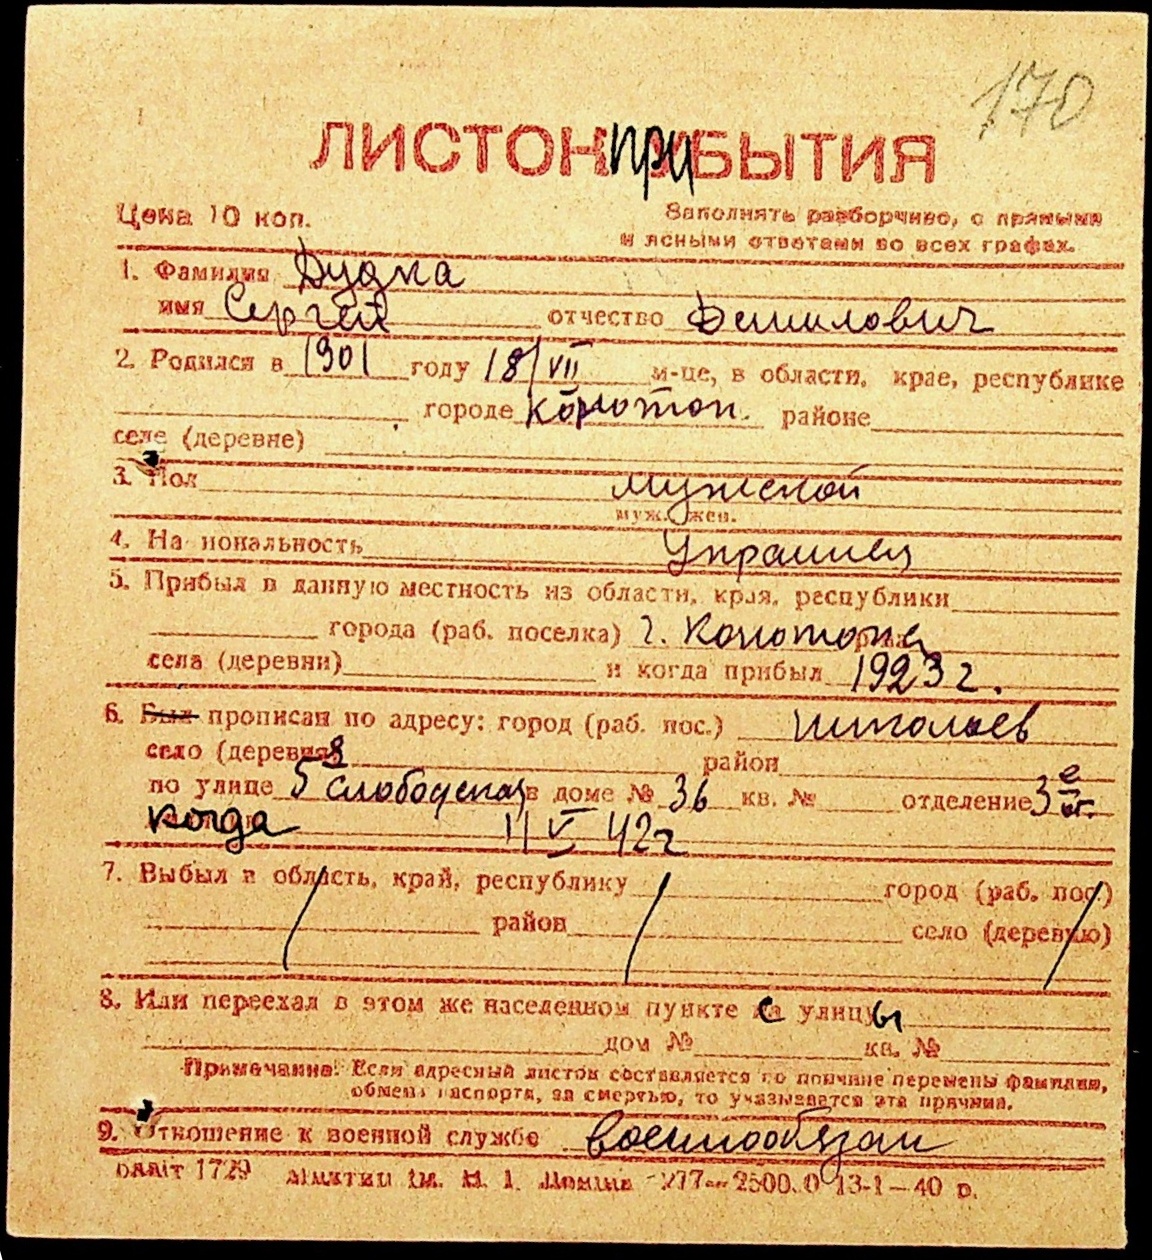 170
ЛИСТОК ПРИБЫТИЯ
Цена 10 коп.
Заполнять разборчиво, с прямыми
и ясными ответами во всех графах.
1. Фамилия Дудка
имя Сергей отчество Данилович
2. Родился в 1901 году 18/VII м-це, в области, крае, республике
городе Конотоп районе
селе (деревне)
3. Пол мужской
муж. жен.
4. Национальность Украинец
5. Прибыл в данную местность из области, края, республики
города (раб. поселка) г. Конотопа
села (деревни) и когда прибыл 1923 г.
6. Был прописан по адресу: город (раб. пос.) Николаев
село (деревня) район
по улице 5 Слободская в доме № 36 кв. № отделение 3е
когда 11 V 42 г
7. Выбыл в область, край, республику город (раб. пос.)
район село (деревню)
8. Или переехал в этом же населенном пункте с улицы
дом № кв. №
Примечание: Если адресный листок составляется по причине перемены фамилии,
обмена паспорта, за смертью, то указывается эта причина.
9. Отношение к военной службе военнообязан
1729 ім. 277— 2500.0 13-1—40 р.